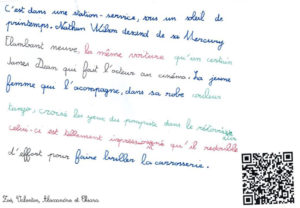 C'est dans une station-service, sous un soleil de
printemps. Nathan Wilson descend de sa Mercury
flambant neuve, la même voiture qu'un certain
James Dean qui fait l'acteur au cinéma. La jeune
femme que l'acompagne, dans sa robe couleur
tango, croise les yeux du pompiste dans le rétroviseur
celui-ci est tellement impressionné qu'il redouble
d'effort pour faire briller la carrosserie.
Zoé, Valentin, Alessandro et Chiara